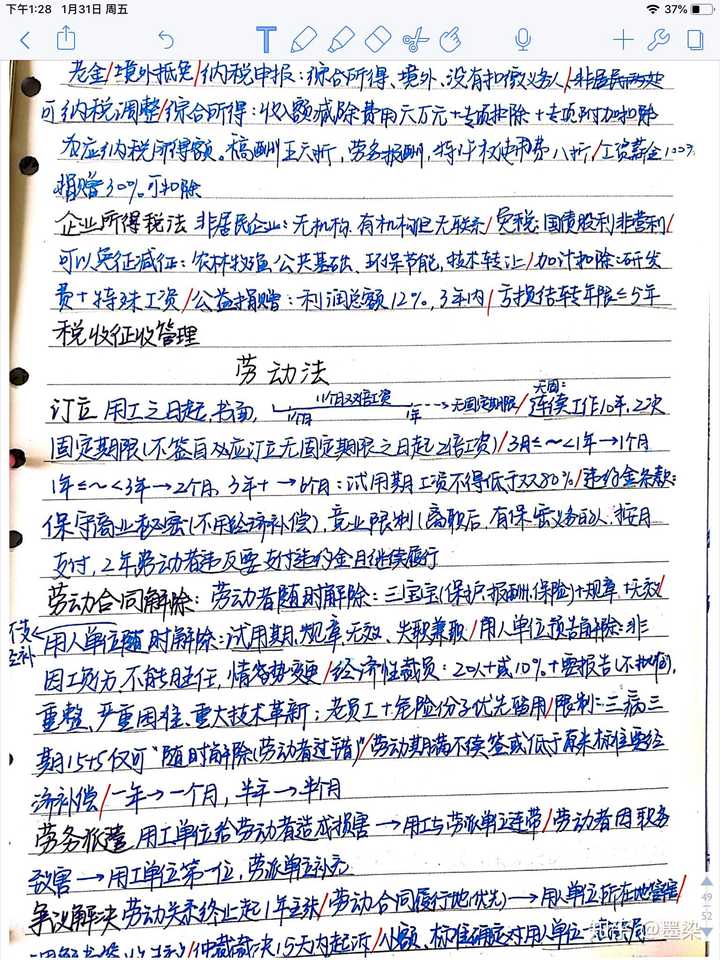 下午1:28 1月31日 周五
37%
老金/境外抵免/纳税申报:综合所得、境外、没有扣缴义务人/非居民两处
可纳税调整/综合所得:收入额减除费用六万元+专项扣除+专项附加扣除
为应纳税所得额。稿酬五六折,劳务报酬,特许权使用费八折/工资薪金100%
捐赠30%可扣除
企业所得税法 非居民企业:无机构、有机构但无联系/免税:国债股利非营利/
可以免征减征:农林牧渔、公共基础、环保节能,技术转让/加计扣除:研发
费+特殊工资/公益捐赠:利润总额12%,3年内/亏损结转年限≤5年
税收征收管理
劳动法
订立 用工之日起,书面, 1个月 11个月双倍工资 1年--→无固定期限/ 无固:连续工作10年,2次
固定期限(不签自双应订立无固定期限之日起2倍工资)/3月≤~<1年→1个月
1年≤~<3年→2个月,3年+→6个月:试用期工资不得低于双80%/违约金条款:
保守商业秘密(不用经济补偿),竞业限制(离职后,有保密义务的人,按月
支付,2年劳动者违反要支付违约金且继续履行
劳动合同解除:劳动者随时解除:三宝宝(保护、报酬、保险)+规章、无效/
不支经补
用人单位随时解除:试用期、规章、无效、失职兼职/用人单位预告解除:非
因工负伤,不能胜任,情客势变更/经济性裁员:20人+或10%+要报告(不批准),
重整、严重困难、重大技术革新;老员工+危险份子优先留用/限制:三病三
期15+5仅可"随时解除(劳动者过错)"/劳动期满不续签或低于原来标准要经
济补偿/一年→一个月,半年→半个月
劳务派遣 用工单位给劳动者造成损害→用工与劳派单位连带/劳动者因职务
致害→用工单位第一位,劳派单位补充
争议解决 劳动关系终止起1年主张/劳动合同履行地(优先)→用人单位所在地管辖/
仲裁裁决15天内起诉/小额、标准确定对用人单位
49
52
知乎 @墨染